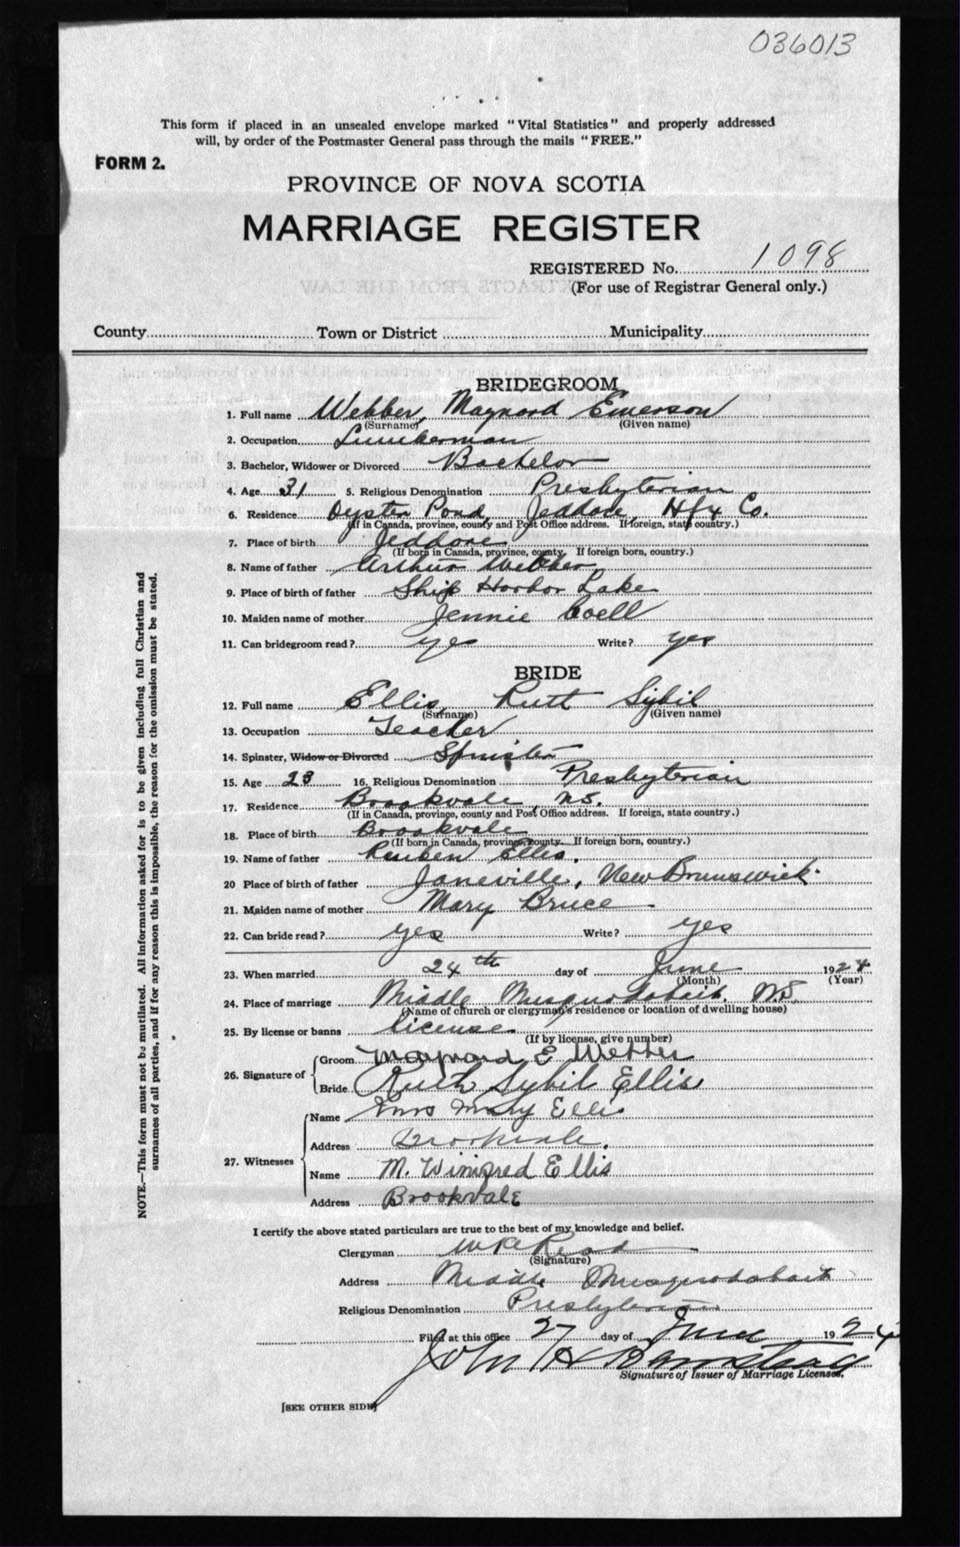 036013
This form if placed in an unsealed envelope marked "Vital Statistics" and properly addressed
will, by order of the Postmaster General pass through the mails "FREE."
FORM 2.
PROVINCE OF NOVA SCOTIA
MARRIAGE REGISTER
REGISTERED No. 1098
(For use of Registrar General only.)
County Town or District Municipality
BRIDEGROOM
1. Full name Webber, Maynard Emerson
(Surname) (Given name)
2. Occupation Lumberman
3. Bachelor, Widower or Divorced Bachelor
4. Age 31 5. Religious Denomination Presbyterian
6. Residence Oyster Pond, Jeddore, Hfx Co.
(If in Canada, province, county and Post Office address. If foreign, state country.)
7. Place of birth Jeddore
(If born in Canada, province, county. If foreign born, country.)
8. Name of father Arthur Webber
9. Place of birth of father Ship Harbor Lake
10. Maiden name of mother Jennie
11. Can bridegroom read? yes Write? yes
BRIDE
12. Full name Ellis, Ruth Sybil
(Surname) (Given name)
13. Occupation Teacher
14. Spinster, Widow or Divorced Spinster
15. Age 23 16. Religious Denomination Presbyterian
17. Residence Brookvale, N.S.
(If in Canada, province, county and Post Office address. If foreign, state country.)
18. Place of birth Brookvale
(If born in Canada, province, county. If foreign born, country.)
19. Name of father Reuben Ellis.
20 Place of birth of father Janeville, New Brunswick.
21. Maiden name of mother Mary Bruce
22. Can bride read? yes Write? yes
23. When married 24th day of June 1924
(Month) (Year)
24. Place of marriage Middle Musquodoboit. N.S.
(Name of church or clergyman's residence or location of dwelling house)
25. By license or banns license
(If by license, give number)
26. Signature of
Groom Maynard E Webber
Bride Ruth Sybil Ellis
27. Witnesses
Name Mrs Mary Ellis
Address Brookvale.
Name M. Winifred Ellis
Address Brookvale
I certify the above stated particulars are true to the best of my knowledge and belief.
Clergyman
(Signature)
Address Middle Musquodoboit
Religious Denomination Presbyterian
Filed at this office 27 day of June 1924
John H
Signature of Issuer of Marriage Licenses.
[SEE OTHER SIDE]
NOTE.—This form must not be mutilated. All information asked for is to be given including full Christian and
surnames of all parties, and if for any reason this is impossible, the reason for the omission must be stated.